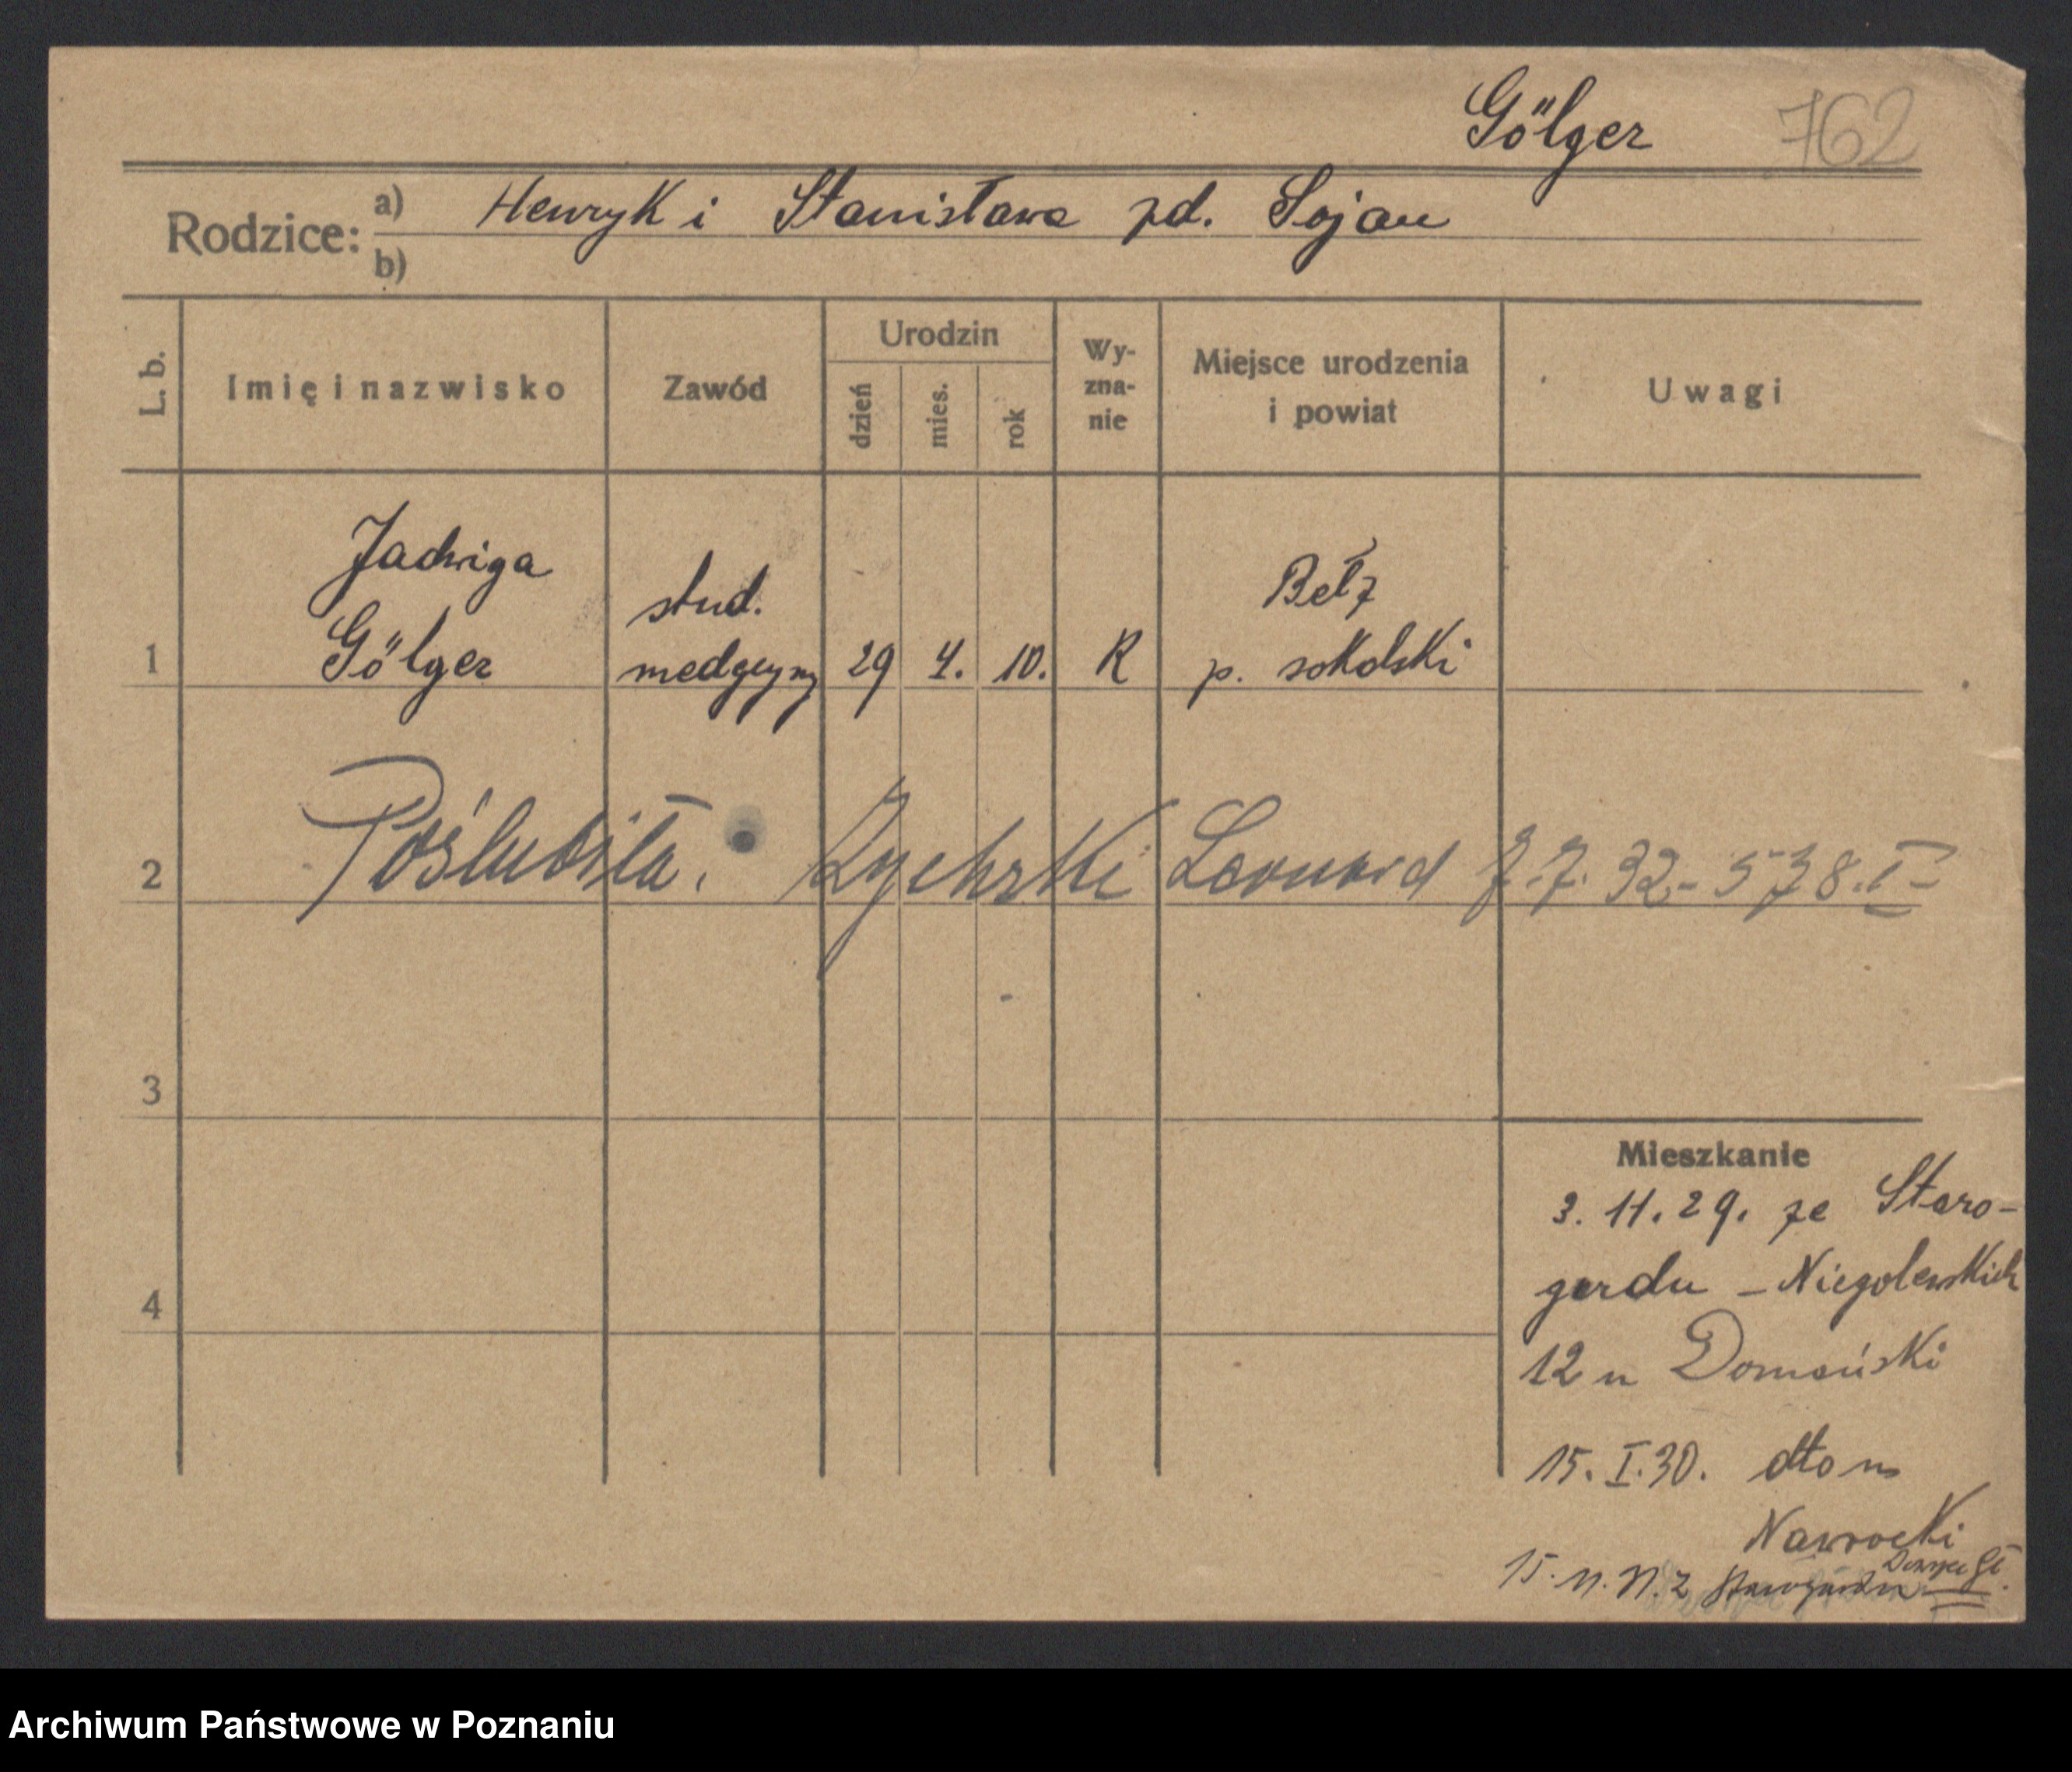 Gölger 762
Rodzice: a) Henryk i Stanisława zd. Sojan
b)
L. b. Imię i nazwisko Zawód Urodzin dzień mies. rok Wyzna-nie Miejsce urodzenia i powiat Uwagi
Jadwiga
Gölger
stud.
medycyny
1 29 4. 10. R
Bełz
p. sokalski
2 Poślubiła: Leonard 7.7.32 - 578.I -
3
4
Mieszkanie
3. 11. 29. ze Staro-
gardu - Niegolewskich
12 u Domański
15. I. 30. dto u
Nawrocki
Archiwum Państwowe w Poznaniu